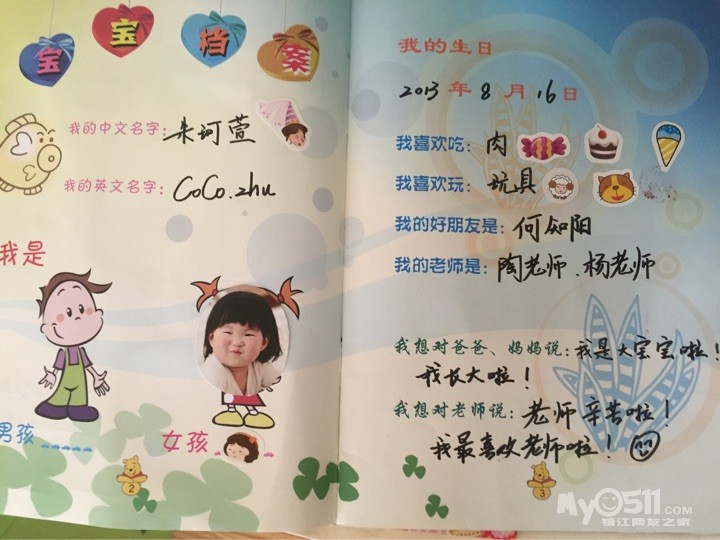 宝宝档案
我的中文名字:朱珂萱
我的英文名字:CoCo.zhu
我是
男孩
女孩
2
我的生日
2013年8月16日
我喜欢吃:肉
我喜欢玩:玩具
我的好朋友是:何知阳
我的老师是:陶老师.杨老师
我想对爸爸、妈妈说:我是大宝宝啦!
我长大啦!
我想对老师说:老师辛苦啦!
我最喜欢老师啦!
3
My0511.COM
镇江网友之家